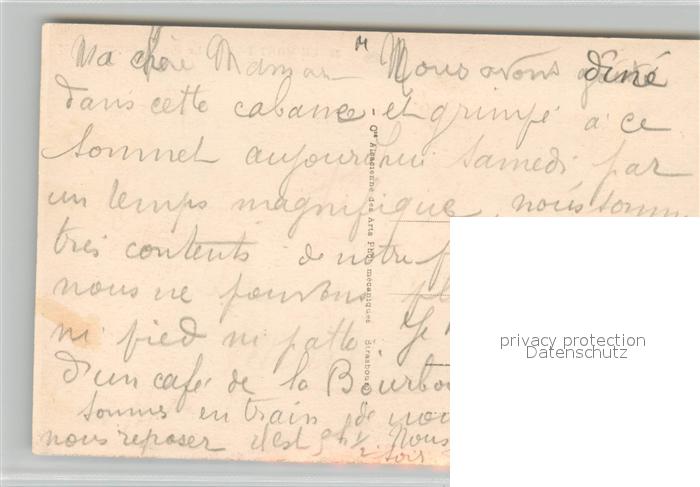 Ma chère Maman — Nous avons diné
dans cette cabane et grimpé à ce
sommet aujourd'hui samedi par
un temps magnifique, nous somm
très contents de notre
nous ne pouvons
ni pied ni patte. Je
d'un café de la Bourbou
sommes en train de nou
nous reposer c'est 5h ½ Nous
soir
Cie Alsacienne des Arts Photomécaniques Strasbourg
privacy protection
Datenschutz